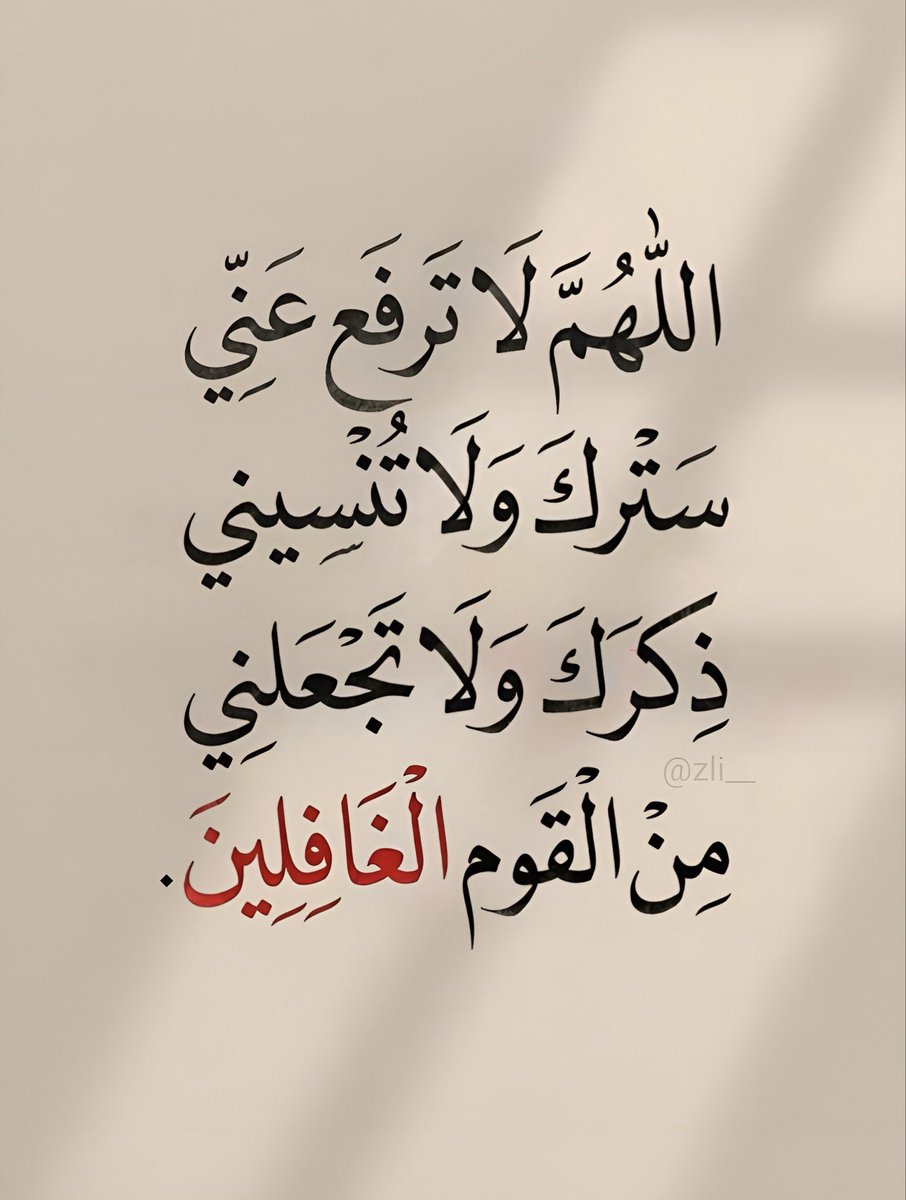 اللّٰهُمَّ لَا تَرفَع عَنِّي
سَتْركَ وَلَا تُنْسِيني
ذِكرَكَ وَلَا تَجْعَلنِي
@zli__
مِنْ الْقَوم الْغَافِلِينَ.